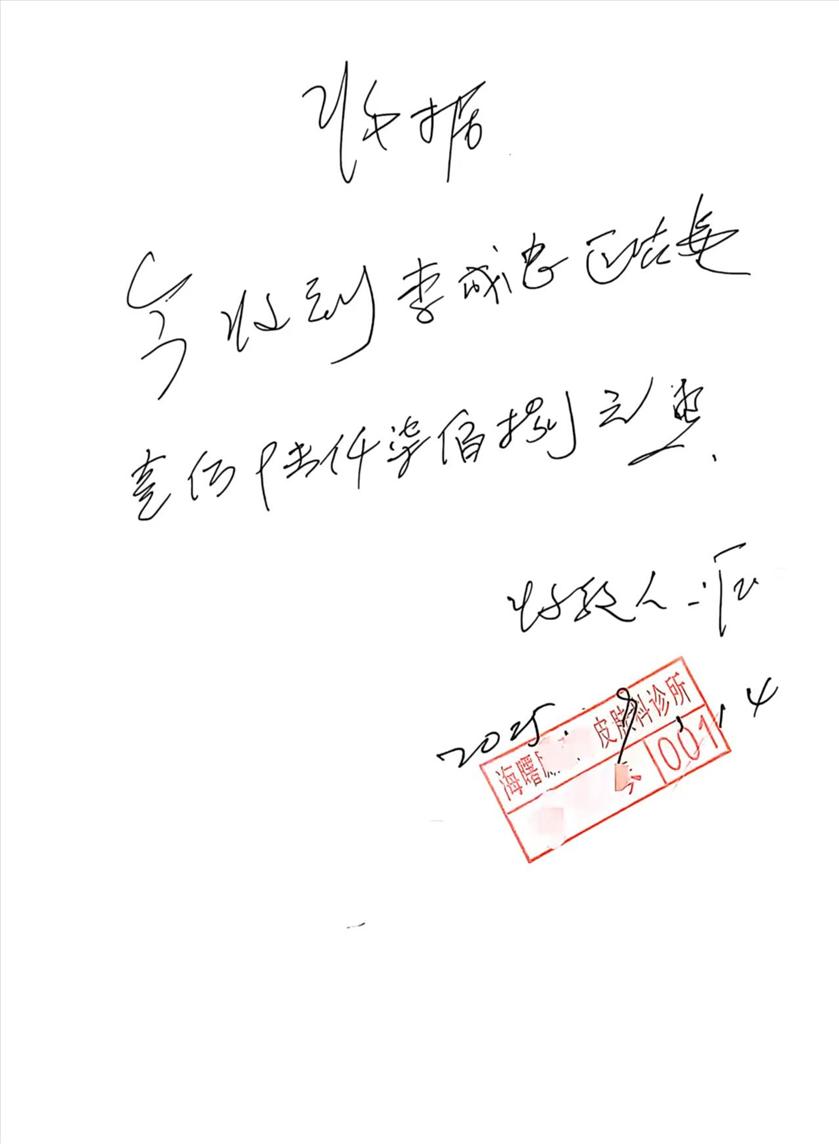 收据
今收到李成忠
壹佰陆仟柒佰捌元整
收款人
2025.9.14
海 皮肤科诊所
001